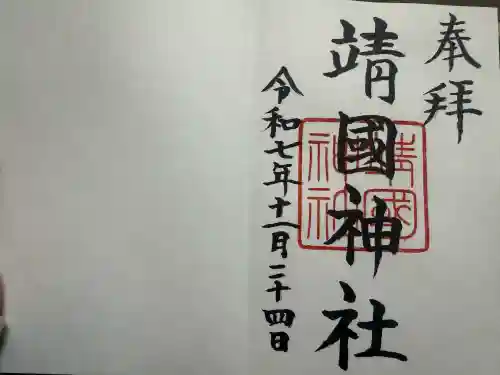 奉拝
靖國神社
令和七年十一月二十四日
靖國神社